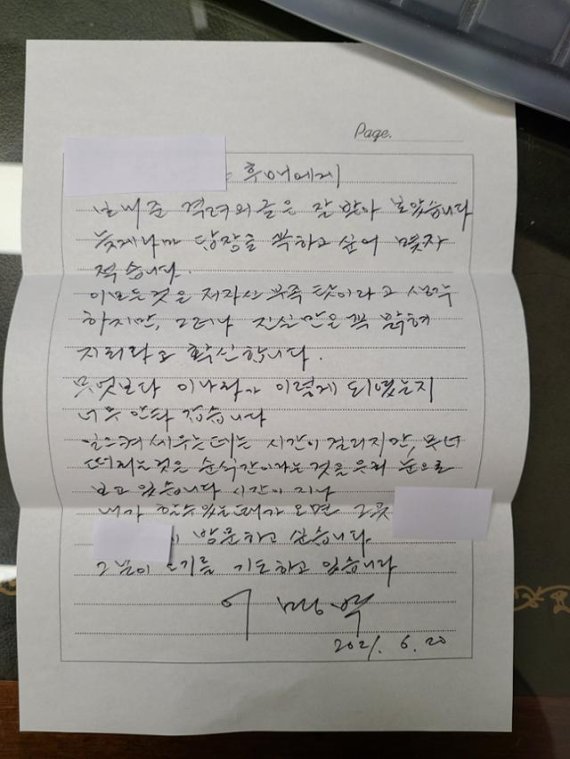 Page.
후배에게
보내준 격려의 글은 잘 받아 보았습니다
늦게나마 답장을 꼭하고 싶어 몇자
적습니다.
이 모든 것은 저 자신 부족 탓이라고 생각
하지만, 그러나 진실만은 꼭 밝혀
지리라고 확신합니다.
무엇보다 이나라가 이렇게 되었는지
너무 안타깝습니다
일으켜 세우는데는 시간이 걸리지만, 무너
떠리는것은 순식간이라는 것은 우리 눈으로
보고 있습니다 시간이 지나
내가 할수있는때가 오면 그곳
방문하고 싶습니다
그날이 오기를 기도하고 있습니다
이명박
2021. 6. 20